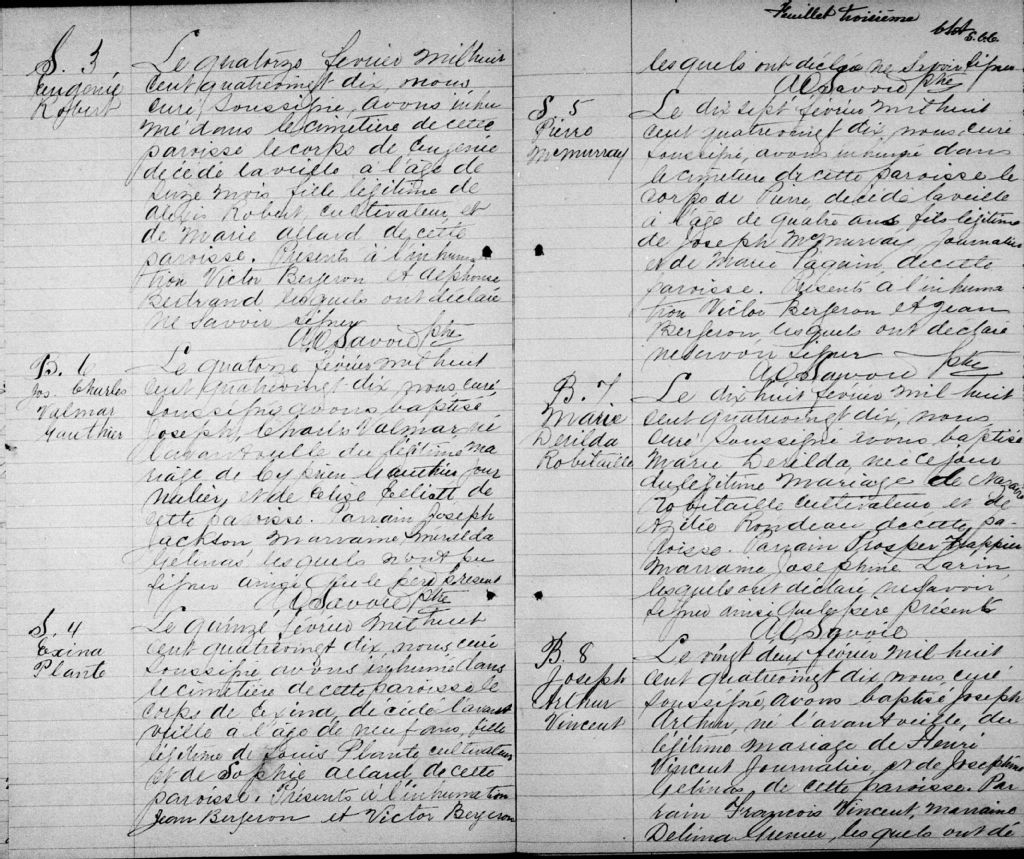 S. 3
Eugénie
Robert
Le quatorze février mil huit
cent quatrevingt dix, nous
curé soussigné, avons inhu
mé dans le cimetière de cette
paroisse le corps de Eugénie
décédé la veille à l'age de
onze mois fille légitime de
Alexis Robert, cultivateur et
de Marie Allard de cette
paroisse. Présents à l'inhuma
tion Victor Bergeron et Alphonse
Bertrand lesquels ont déclaré
ne savoir signer
A.O. Savoie ptre
B. 6
Jos. Charles
Valmar
Gauthier
Le quatorze février mil huit
cent quatrevingt dix, nous curé
soussigné avons baptisé
Joseph, Charles Valmar, né
l'avant veille du légitime ma
riage de Cyprien Gauthier jour
nalier, et de Elise Elliott de
cette paroisse. Parrain Joseph
Jackson Marraine Mersilda
Gelinas lesquels n'ont pu
signer ainsi que le père présent
A.O. Savoie ptre
S. 4
Exina
Plante
Le quinze février mil huit
cent quatrevingt dix, nous curé
soussigné avons inhumé dans
le cimetière de cette paroisse le
corps de Exina, décédé l'avant
veille à l'age de neuf ans, fille
légitime de Louis Plante cultivateur
et de Sophie Allard de cette
paroisse. Présents à l'inhumation
Jean Bergeron et Victor Bergeron
Feuillet troisième
lesquels ont déclaré ne savoir signer
A.O. Savoie ptre
S. 5
Pierre
McMurray
Le dix sept février mil huit
cent quatrevingt dix, nous curé
soussigné, avons inhumé dans
le cimetière de cette paroisse le
corps de Pierre décédé la veille
à l'age de quatre ans, fils légitime
de Joseph McMurray Journalier
et de Marie Paquin, de cette
paroisse. Présents à l'inhuma
tion Victor Bergeron et Jean
Bergeron, lesquels ont déclaré
ne savoir signer
A.O. Savoie ptre
B. 7
Marie
Derilda
Robitaille
Le dix huit février mil huit
cent quatrevingt dix, nous
curé soussigné avons baptisé
Marie Derilda, née ce jour
du légitime mariage de Nazaire
Robitaille cultivateur et de
Azélie Rondeau de cette pa-
roisse. Parrain Prosper Frappier
Marraine Josephine Larin
lesquels ont déclaré ne savoir
signer ainsi que le père présents
A.O. Savoie
B. 8
Joseph
Arthur
Vincent
Le vingt deux février mil huit
cent quatrevingt dix nous curé
soussigné, avons baptisé Joseph
Arthur, né l'avant veille, du
légitime mariage de Henri
Vincent Journalier, et de Josephine
Gelinas de cette paroisse. Par
rain François Vincent, Marraine
Delima Grenier, lesquels ont dé